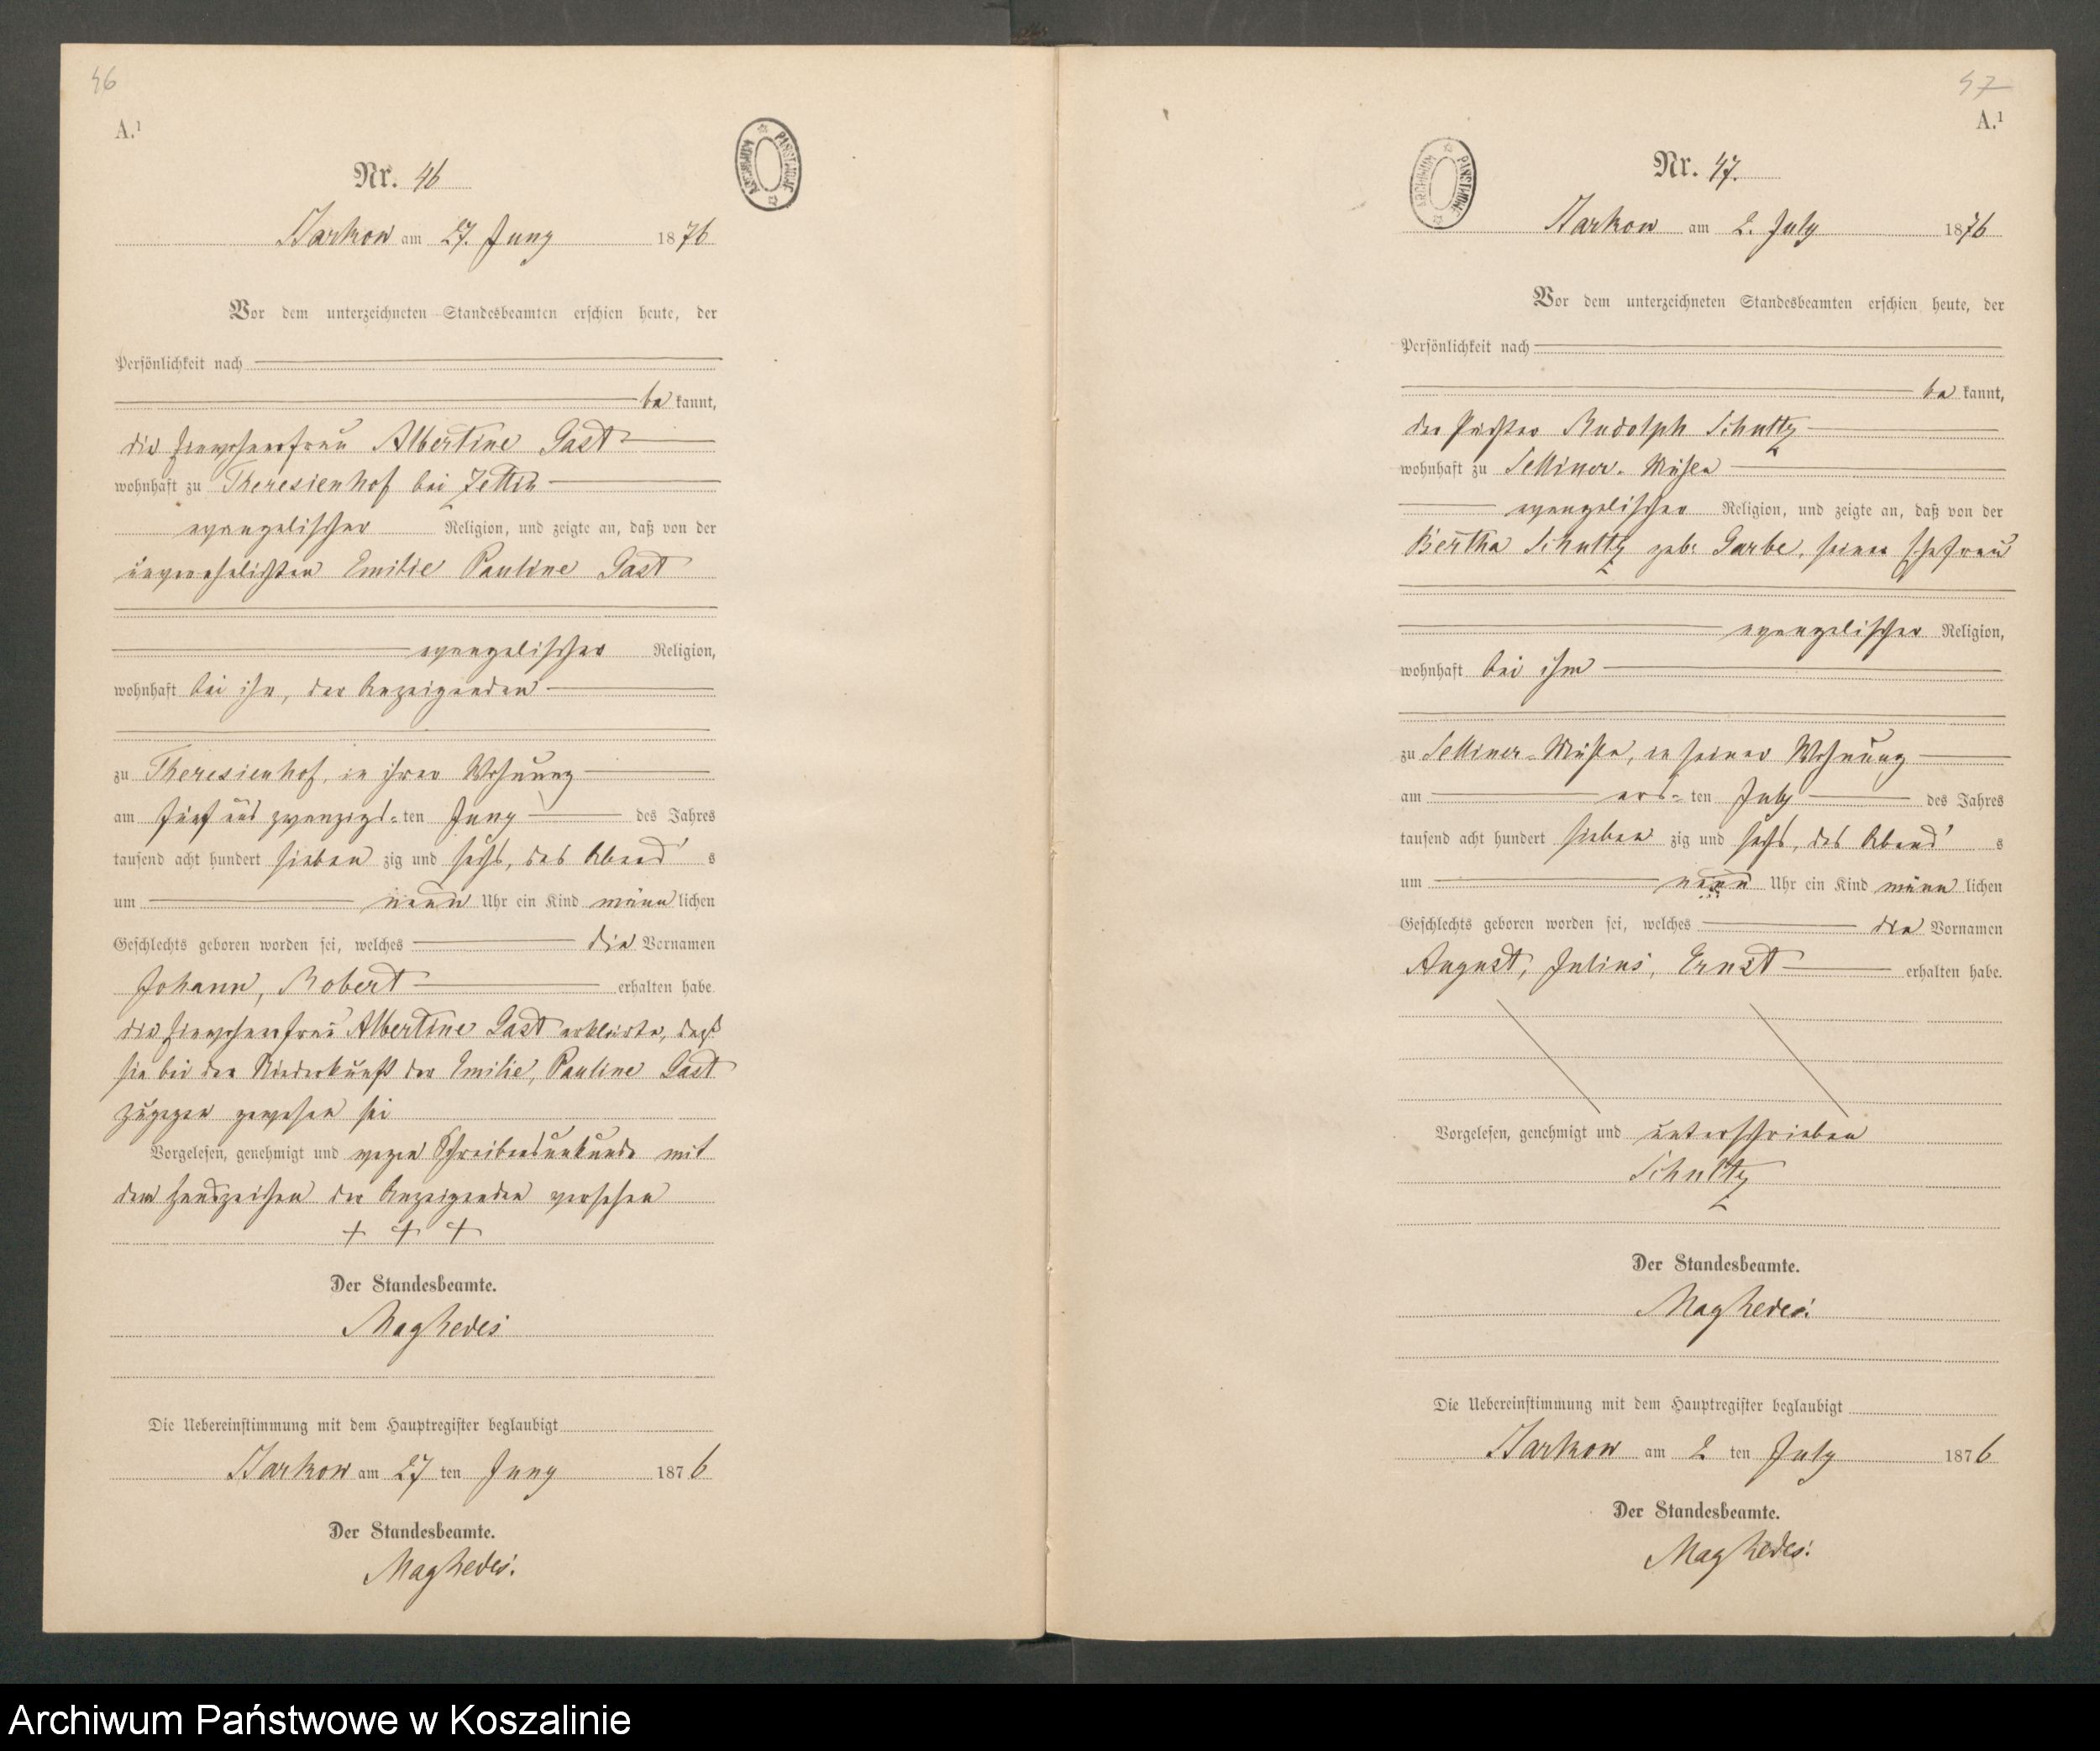 46
A.¹
Nr. 46
Barkow am 27. Juny 1876
Vor dem unterzeichneten Standesbeamten erschien heute, der
Persönlichkeit nach
be kannt,
die Einwohnerfrau Albertine Gast
wohnhaft zu Theresienhof bei Zettin
evangelischer Religion, und zeigte an, daß von der
unverehelichten Emilie Pauline Gast
evangelischer Religion,
wohnhaft bei ihr, der Anzeigenden
zu Theresienhof, in ihrer Wohnung
am fünf und zwanzigs-ten Juny des Jahres
tausend acht hundert sieben zig und sechs, des Abend s
um neun Uhr ein Kind männ lichen
Geschlechts geboren worden sei, welches die Vornamen
Johann, Robert erhalten habe
die Einwohnerfrau Albertine Gast erklärte, daß
sie bei der Niederkunft der Emilie, Pauline Gast
zugegen gewesen sei
Vorgelesen, genehmigt und wegen Schreibensunkunde mit
dem Handzeichen der Anzeigenden versehen
+ + +
Der Standesbeamte.
Die Uebereinstimmung mit dem Hauptregister beglaubigt
Barkow am 27 ten Juny 1876
Der Standesbeamte.
ARCHIWUM PAŃSTWOWE
47
A.¹
Nr. 47.
Barkow am 2. July 1876
Vor dem unterzeichneten Standesbeamten erschien heute, der
Persönlichkeit nach
be kannt,
der Pächter Rudolph Schultz
wohnhaft zu Selliner-Mühle
evangelischer Religion, und zeigte an, daß von der
Bertha Schultz geb: Garbe, seiner Ehefrau
evangelischer Religion,
wohnhaft bei ihm
zu Selliner-Mühle, in seiner Wohnung
am ers-ten July des Jahres
tausend acht hundert sieben zig und sechs, des Abend s
um neun Uhr ein Kind männ lichen
Geschlechts geboren worden sei, welches die Vornamen
August, Julius, Ernst erhalten habe.
Vorgelesen, genehmigt und unterschrieben
Schultz
Der Standesbeamte.
Die Uebereinstimmung mit dem Hauptregister beglaubigt
Barkow am 2 ten July 1876
Der Standesbeamte.
ARCHIWUM PAŃSTWOWE
Archiwum Państwowe w Koszalinie